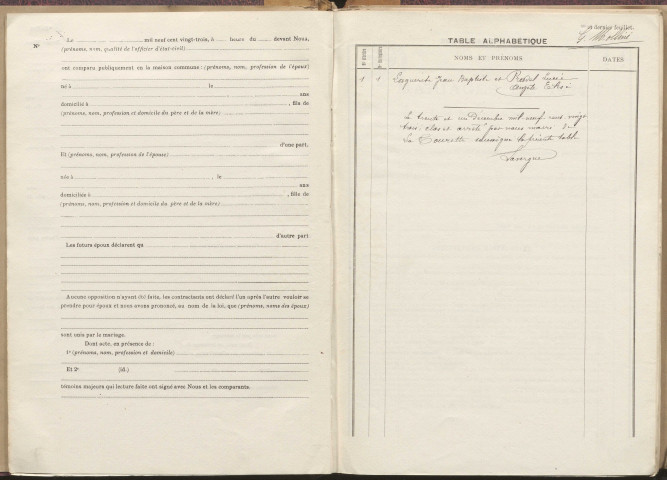 Le mil neuf cent vingt-trois, à heure du devant Nous,
N°
(prénoms, nom, qualité de l'officier d'état-civil)
ont comparu publiquement en la maison commune : (prénoms, nom, profession de l'époux)
né à , le
ans
domicilié à , fils de
(prénoms, nom, profession et domicile du père et de la mère)
d'une part,
Et (prénoms, nom, profession de l'épouse)
née à , le
ans
domiciliée à , fille de
(prénoms, nom, profession et domicile du père et de la mère)
d'autre part
Les futurs époux déclarent qu
Aucune opposition n'ayant été faite, les contractants ont déclaré l'un après l'autre vouloir se
prendre pour époux et nous avons prononcé, au nom de la loi, que (prénoms, noms des époux)
sont unis par le mariage.
Dont acte, en présence de :
1° (prénoms, nom, profession et domicile)
Et 2° (id.)
témoins majeurs qui lecture faite ont signé avec Nous et les comparants.
et dernier feuillet.
TABLE ALPHABÉTIQUE
NOMS ET PRÉNOMS
DATES
1 1 Jean Baptiste et Lucie
Le trente et un Décembre mil neuf cent vingt
trois, clos et arrêté par nous maire de
La Tourette la présente table